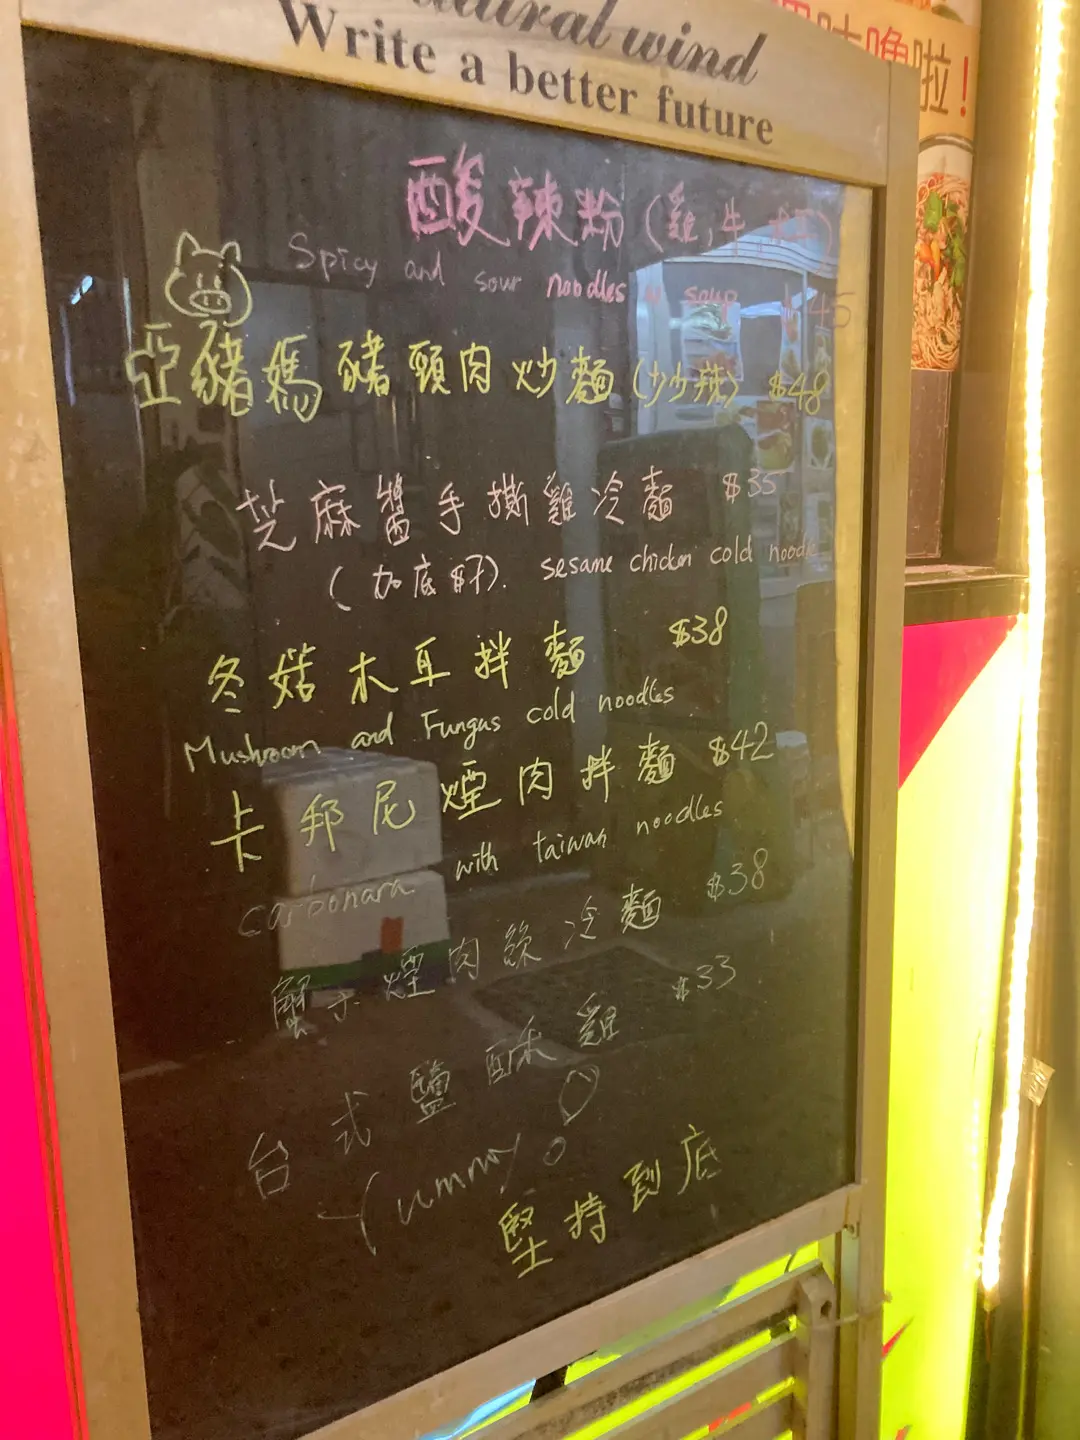 wind
Write a better future
啦！
酸辣粉(雞,牛,
Spicy and sour noodles soup 45
亞豬媽豬頸肉炒麵(少少辣) $48
芝麻醬手撕雞冷麵 $35
(加底 sesame chicken cold noodle
冬菇木耳拌麵 $38
Mushroom and Fungus cold noodles
卡邦尼煙肉拌麵 $42
carbonara with taiwan noodles
蟹子煙肉絲冷麵 $38
台式鹽酥雞 $33
Yummy
堅持到底